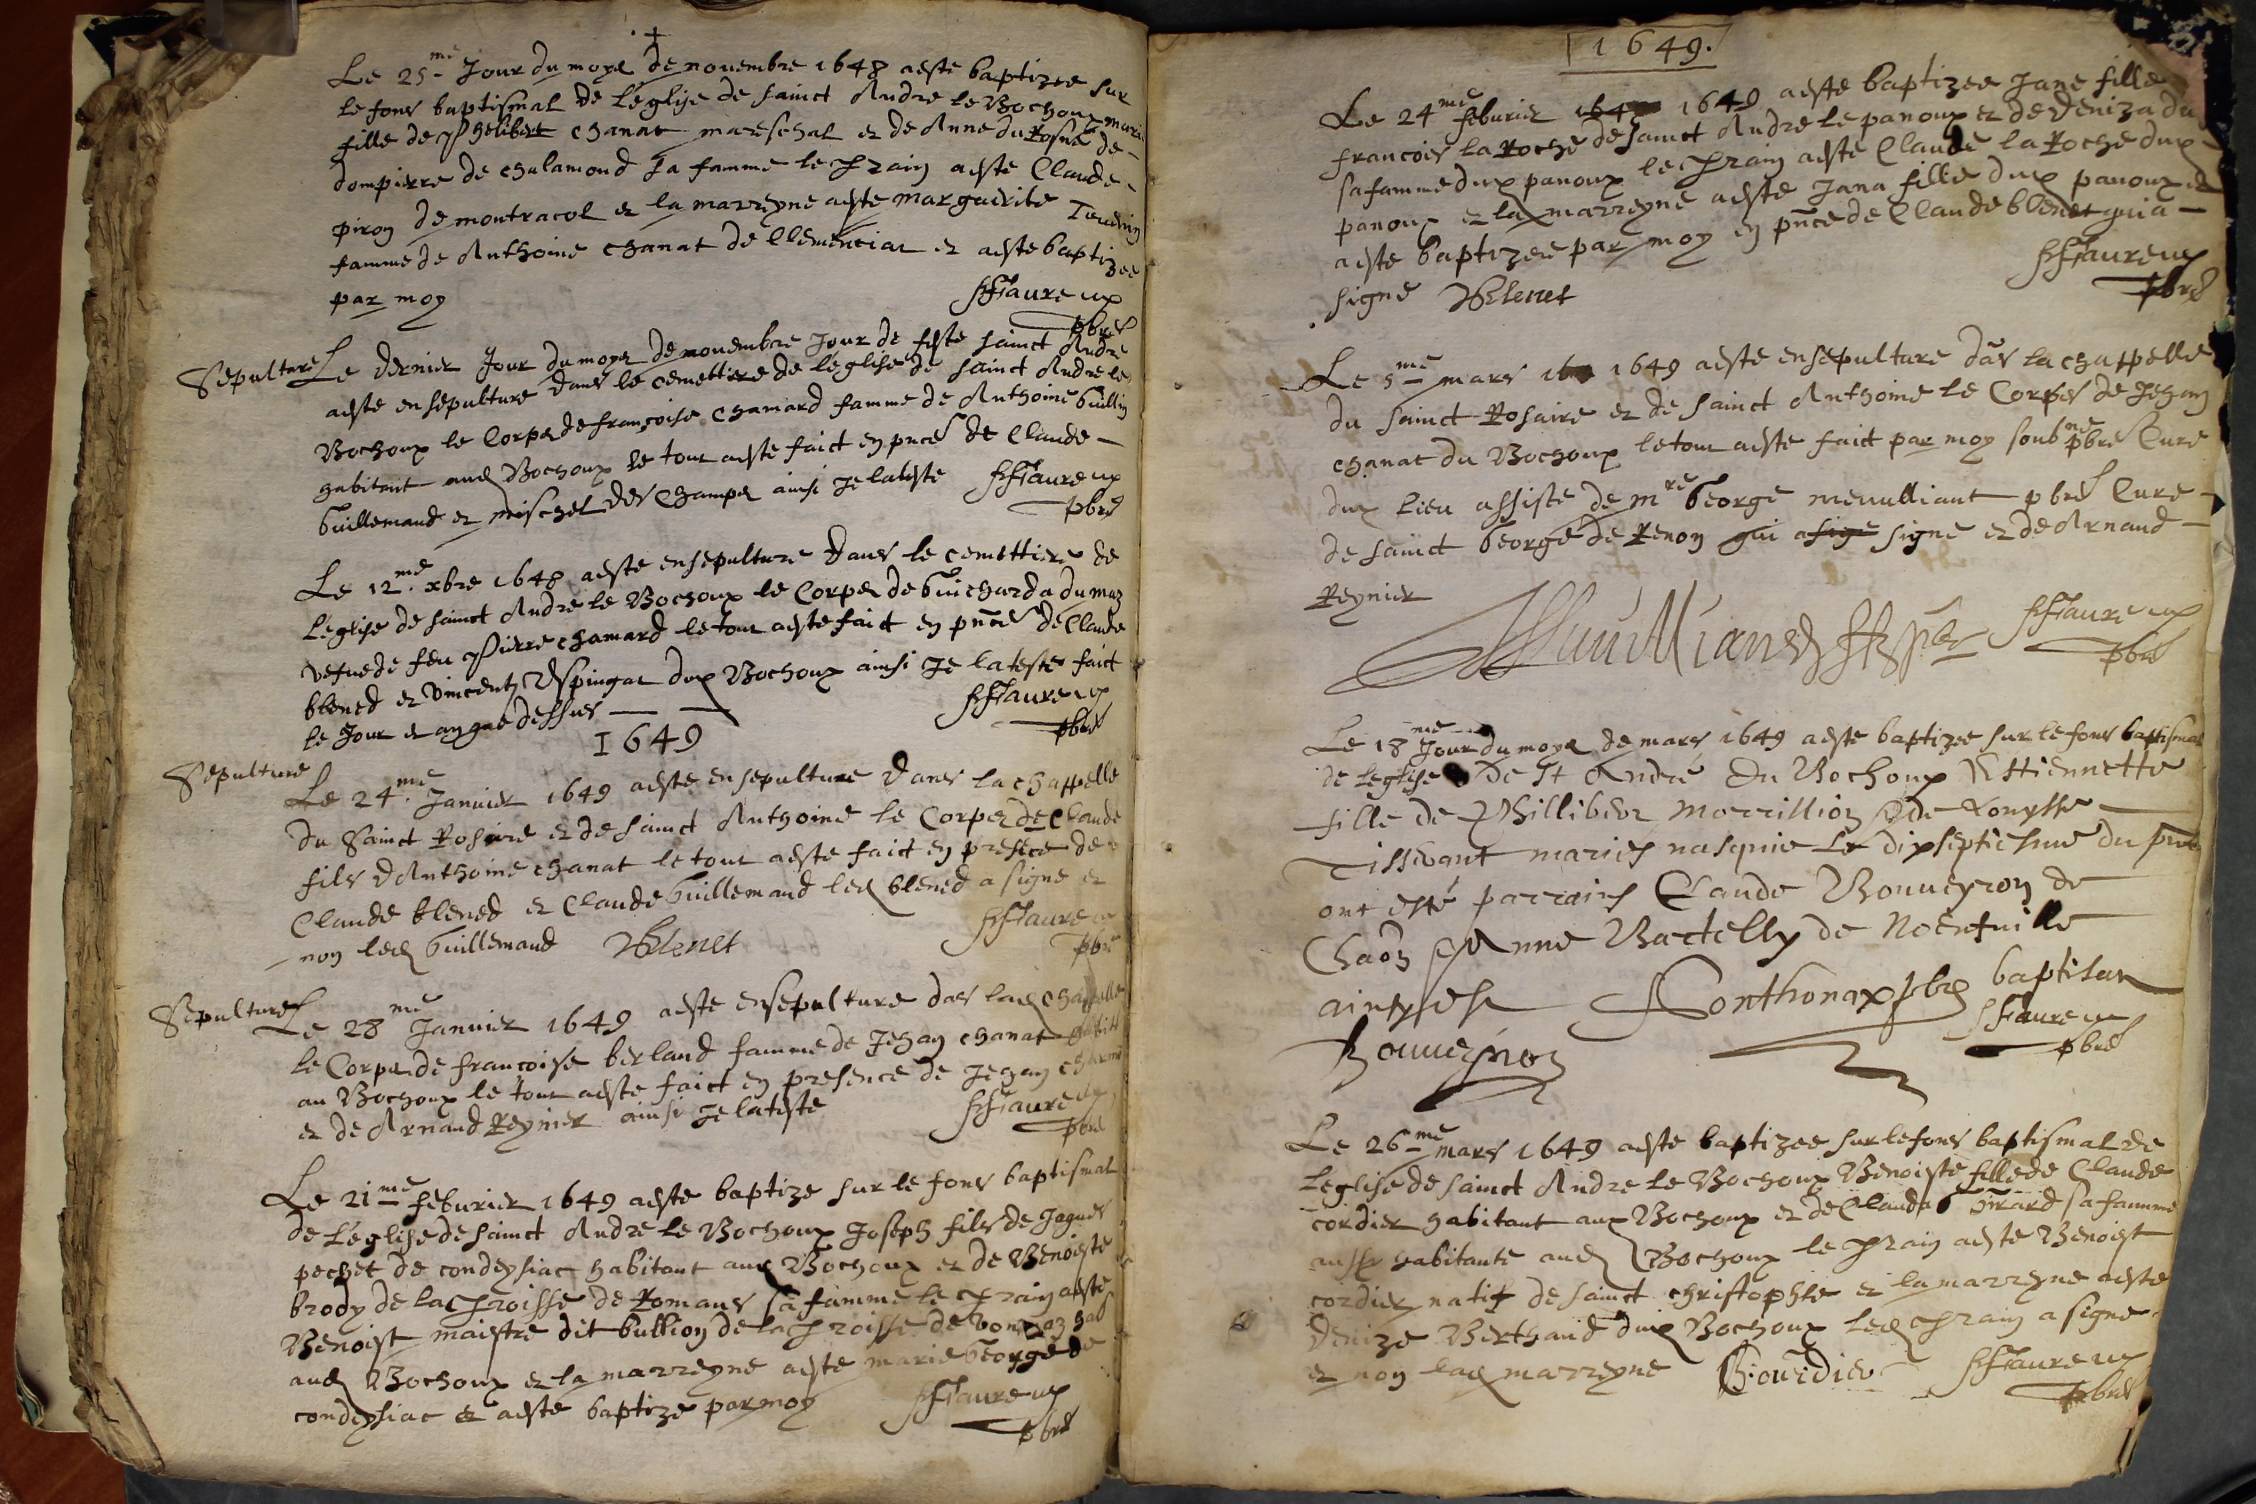 Le 25me Jour du moys de novembre 1648 aeste baptizee sur
le fons baptismal de l'eglise de sainct Andre le Bochoux marie
fille de Phelibert chanat mareschal et de Anne du Rosne de
dompierre de chalamond sa famme le prain aeste Claude
piron de montracol et la marreyne aeste marguerite
famme de Anthoine chanat de Clemenciat et aeste baptizee
par moy
FFaureux
pbre
Sepulture
Le dernier Jour du moys de novembre Jour de feste sainct Andre
aeste ensepulture dans le cemettiere de l'eglise de sainct Andre le
Bochoux le Corps de francoise chamard famme de Anthoine Guillin
habitant aud Bochoux le tout aeste faict en pnce de Claude
Guillemaud et mischel des Champs ainsi Je lateste
FFaureux
pbre
Le 12me xbre 1648 aeste ensepulture dans le cemettiere de
l'eglise de sainct Andre le Bochoux le Corps de Guicharda dumaz
vefue de feu Pierre chamard le tout aeste faict en pnce de Claude
blened et vincent Espingat dud Bochoux ainsi Je lateste faict
le Jour et an que dessus
FFaureux
pbre
1649
Sepulture
Le 24me Januier 1649 aeste ensepulture dans la chappelle
du Sainct Rosaire et de sainct Anthoine le Corps de Claude
fils d'Anthoine chanat le tout aeste faict en presece de
Claude blened et Claude Guillemaud led blened a signe et
non led Guillemaud
Blenet
FFaureux
pbre
Sepulture
Le 28me Januier 1649 aeste ensepulture das lad chappelle
le Corps de francoise berland famme de Jehan chanat
au Bochoux le tout aeste faict en presence de Jehan
et de Arnaud Reynier ainsi Je lateste
FFaureux
pbre
Le 21me feburier 1649 aeste baptize sur le fons baptismal
de l'eglise de sainct Andre le Bochoux Joseph fils de Jaques
pechet de condeysiac habitant aux Bochoux et de Benoiste
brody de la proisse de Romans sa famme le prain aeste
Benoist maistre dit bullion de la proisse de
aud Bochoux et la marreyne aeste marie George de
condeysiac et aeste baptize par moy
FFaureux
pbre
1649.
Le 24me feburier 1649 aeste baptizee Jane fille
francois la Roche de sainct Andre le panoux et de Deniza du
sa famme dud panoux le prain aeste Claude la Roche dud
panoux et la marreyne aeste Jana fille dud panoux et
aeste baptizee par moy en pnce de Claude blenet qui a
signe Blenet
FFaureux
pbre
Le 5me mars 1649 aeste ensepulture das la chappelle
du sainct Rosaire et de sainct Anthoine le Corps de Jehan
chanat du Bochoux le tout aeste faict par moy soubne pbre Cure
dud lieu assiste de mre George meuulliant pbre Cure
de sainct George de Renon qui a signe signe et de Arnaud
Reynier
FFaureux
pbre
Le 18me Jour du moys de mars 1649 aeste baptizee sur le fons baptismal
de l'eglise De St André Du Bochoux Estiennette
fille de Phillibert Morrillion & de
Tisserant maries nasquie le dixseptiesme du pnt
ont esté parrains Claude Bouueyron de
Chaon & Anne Bartelly de
ainsy est Ronthonax pbre baptisant
Bouueyron
FFaureux
pbre
Le 26me mars 1649 aeste baptizee sur le fons baptismal de
L'eglise de sainct Andre le Bochoux Benoiste fille de Claude
cordier habitant aux Bochoux et de Clauda Girard sa famme
aussy habitante aud Bochoux le prain aeste Benoist
cordier natif de sainct christophle et la marreyne aeste
Denize Berthaud dud Bochoux led prain a signe
et non lad marreyne
FFaureux
pbre